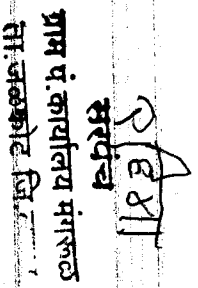 सरपंच
ग्राम पं. कार्यालय मंगरूळ
ता. जळकोट जि.